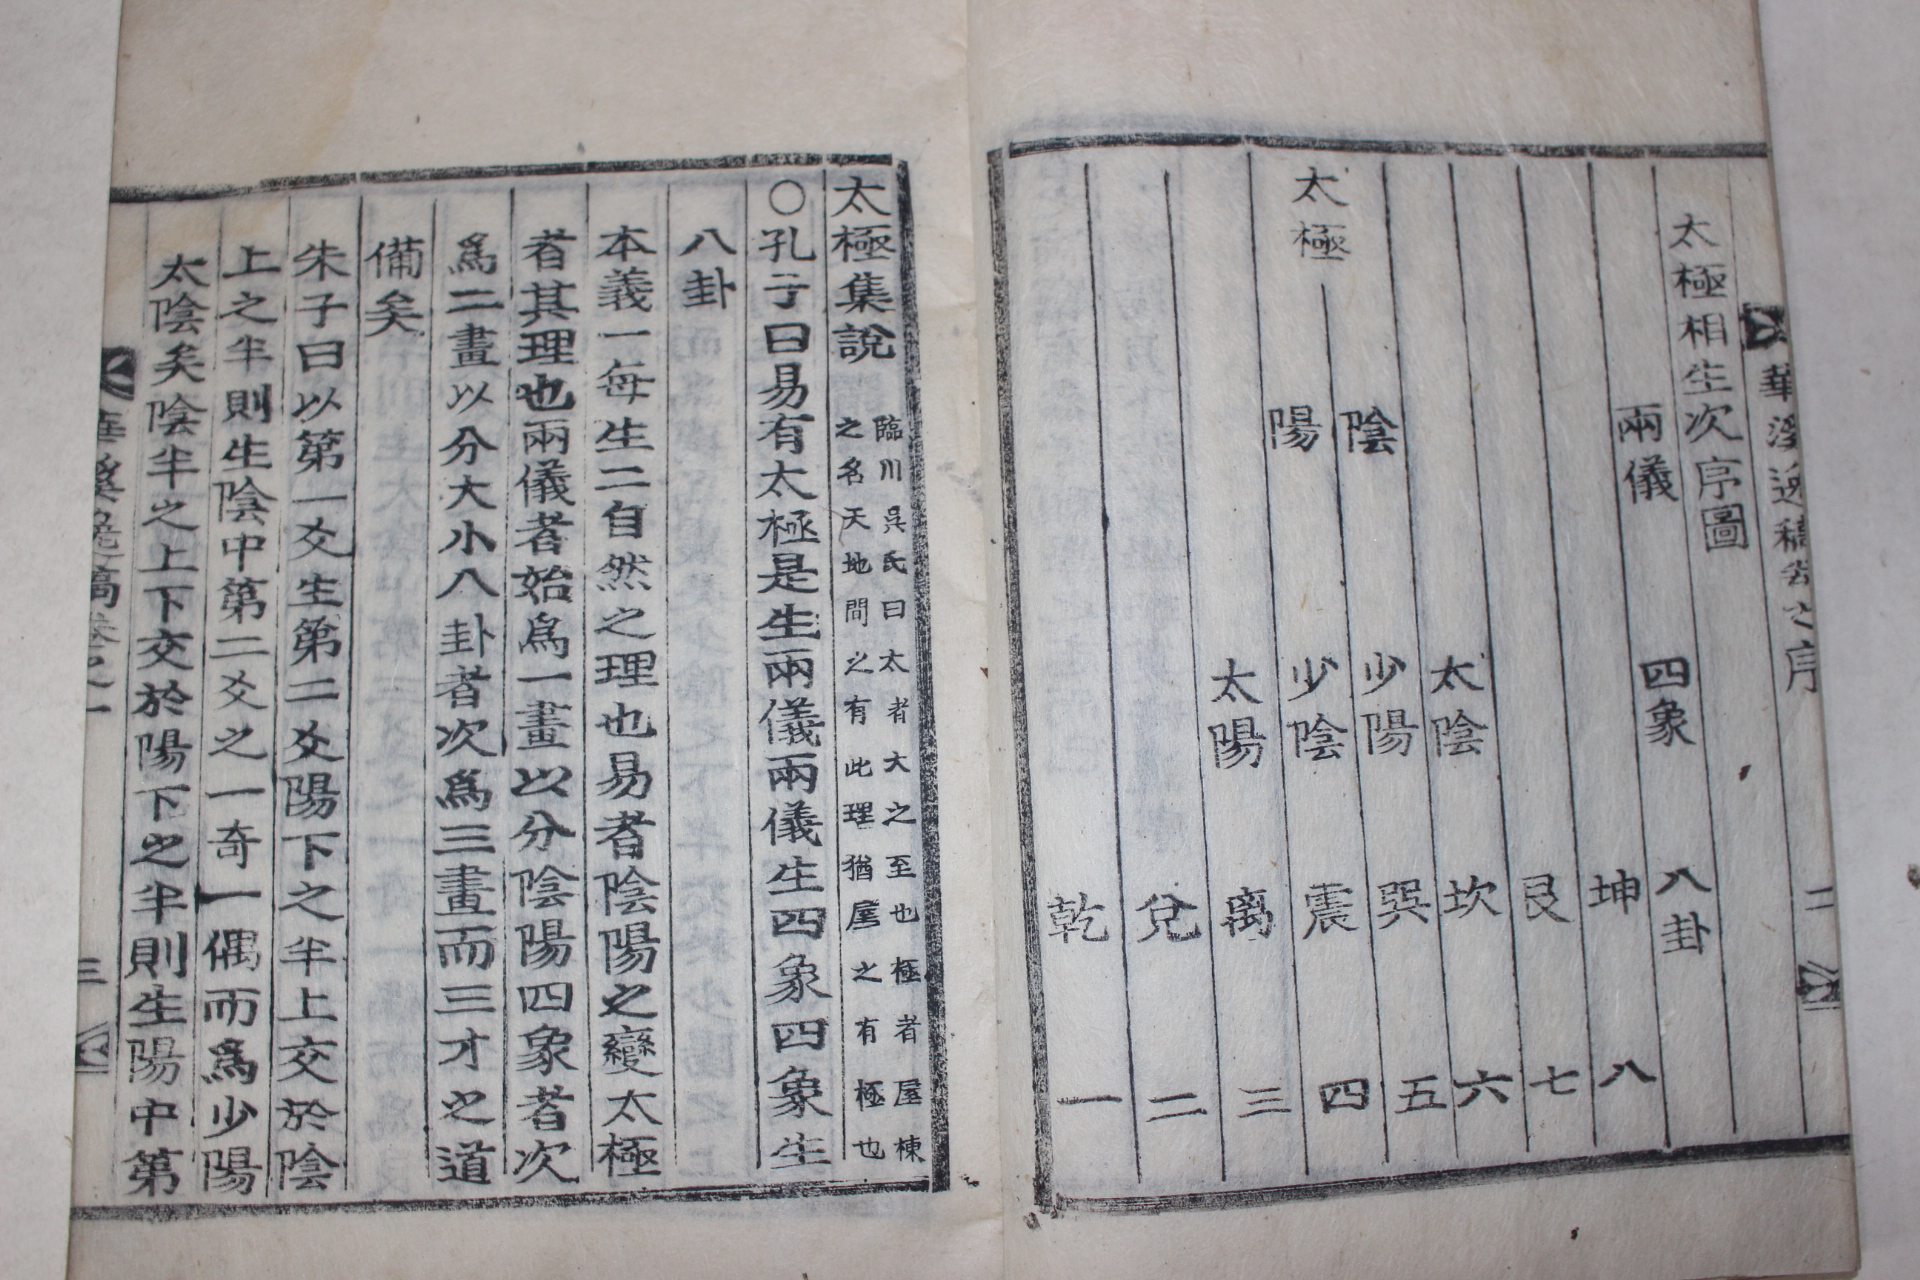 華溪逸稿卷之序 二
太極相生次序圖
兩儀 四象 八卦
坤 八
艮 七
太陰 坎 六
陰 少陽 巽 五
太極
陽 少陰 震 四
太陽 离 三
兌 二
乾 一
太極集說 臨川吳氏曰太者大之至也極者屋棟
之名天地間之有此理猶屋之有極也
○孔子曰易有太極是生兩儀兩儀生四象四象生
八卦
本義一每生二自然之理也易者陰陽之變太極
者其理也兩儀者始爲一畫以分陰陽四象者次
爲二畫以分大小八卦者次爲三畫而三才之道
備矣
朱子曰以第一爻生第二爻陽下之半上交於陰
上之半則生陰中第二爻之一奇一偶而爲少陽
太陰矣陰半之上下交於陽下之半則生陽中第
華溪逸稿卷之一 三